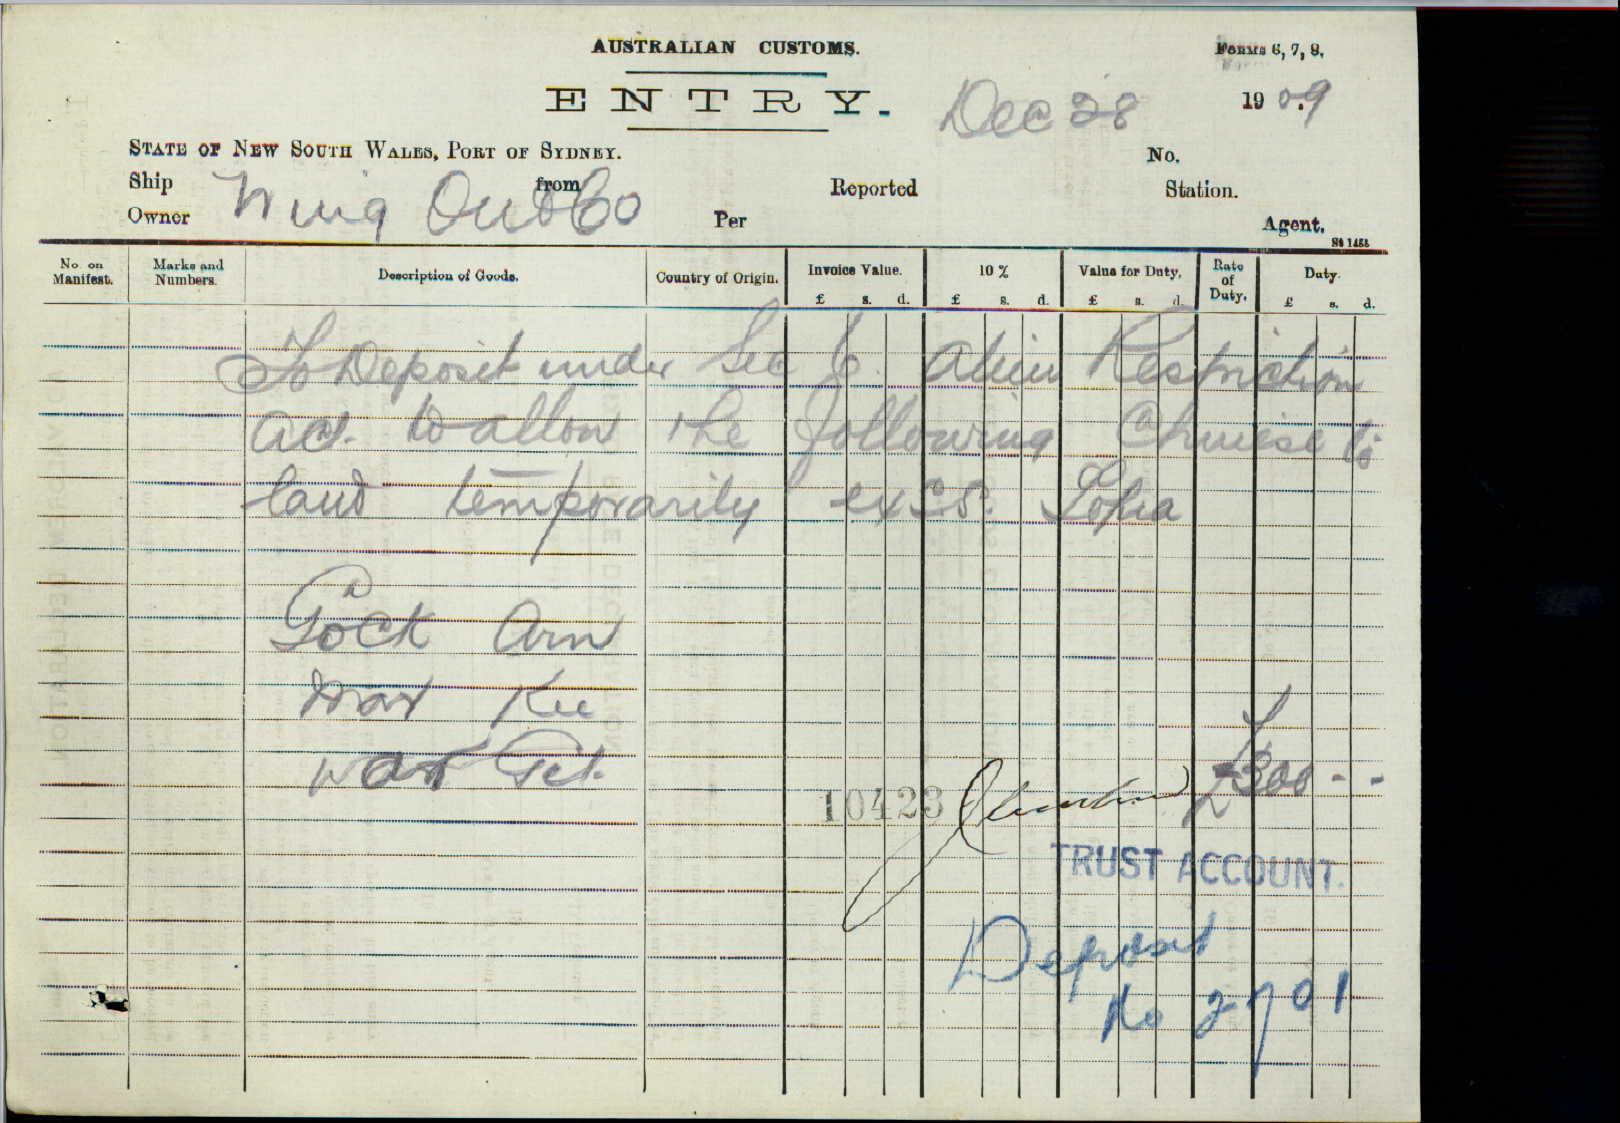 AUSTRALIAN CUSTOMS.
Forms 6, 7, 8.
ENTRY.
Dec 28 1909.
STATE OF NEW SOUTH WALES, PORT OF SYDNEY.
No.
Ship from Reported Station.
Owner Wing On & Co Per Agent.
St 1455
No. on Manifest. Marks and Numbers. Description of Goods. Country of Origin. Invoice Value. 10 % Value for Duty. Rate of Duty. Duty.
£ s. d. £ s. d. £ s. d. £ s. d.
To Deposit under Sec 6. Alien Restriction
Act. to allow the following Chinese to
land temporarily ex S.S. Sofia
Gock Arn
Mar Kee
War Get
£300 - -
10423
TRUST ACCOUNT.
Deposit
No 2701